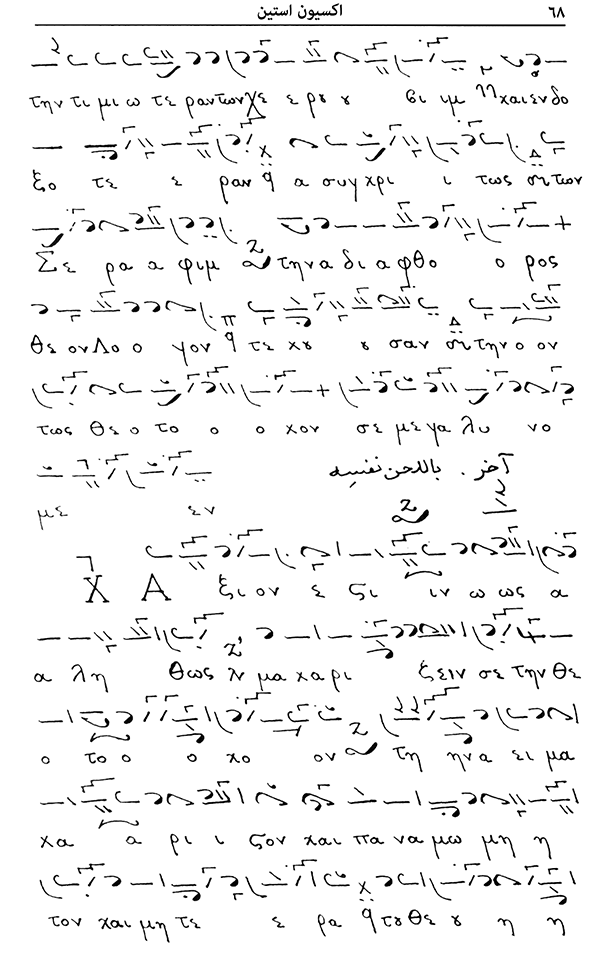 ٦٨ اكسيون استين
την τι μι ω τε ραν των χε ε ρου ου βι ιμ η και εν δο
ξο τε ε ραν α συγ κρι ι τως των
Σε ρα α φιμ την α δι α φθο ο ρος
θε ον Λο ο γον τε κου ου σαν την ο ον
τως θε ο το ο ο κον σε με γα λυ νο
με εν
آخر . باللحن نفسه
Α ξι ον ε στι ιν ω ως α
α λη θως μα κα ρι ζειν σε την θε
ο το ο ο κο ον τη ην α ει μα
κα α ρι ι στον και πα να μω μη η
τον και μη τε ε ρα του θε ου η η